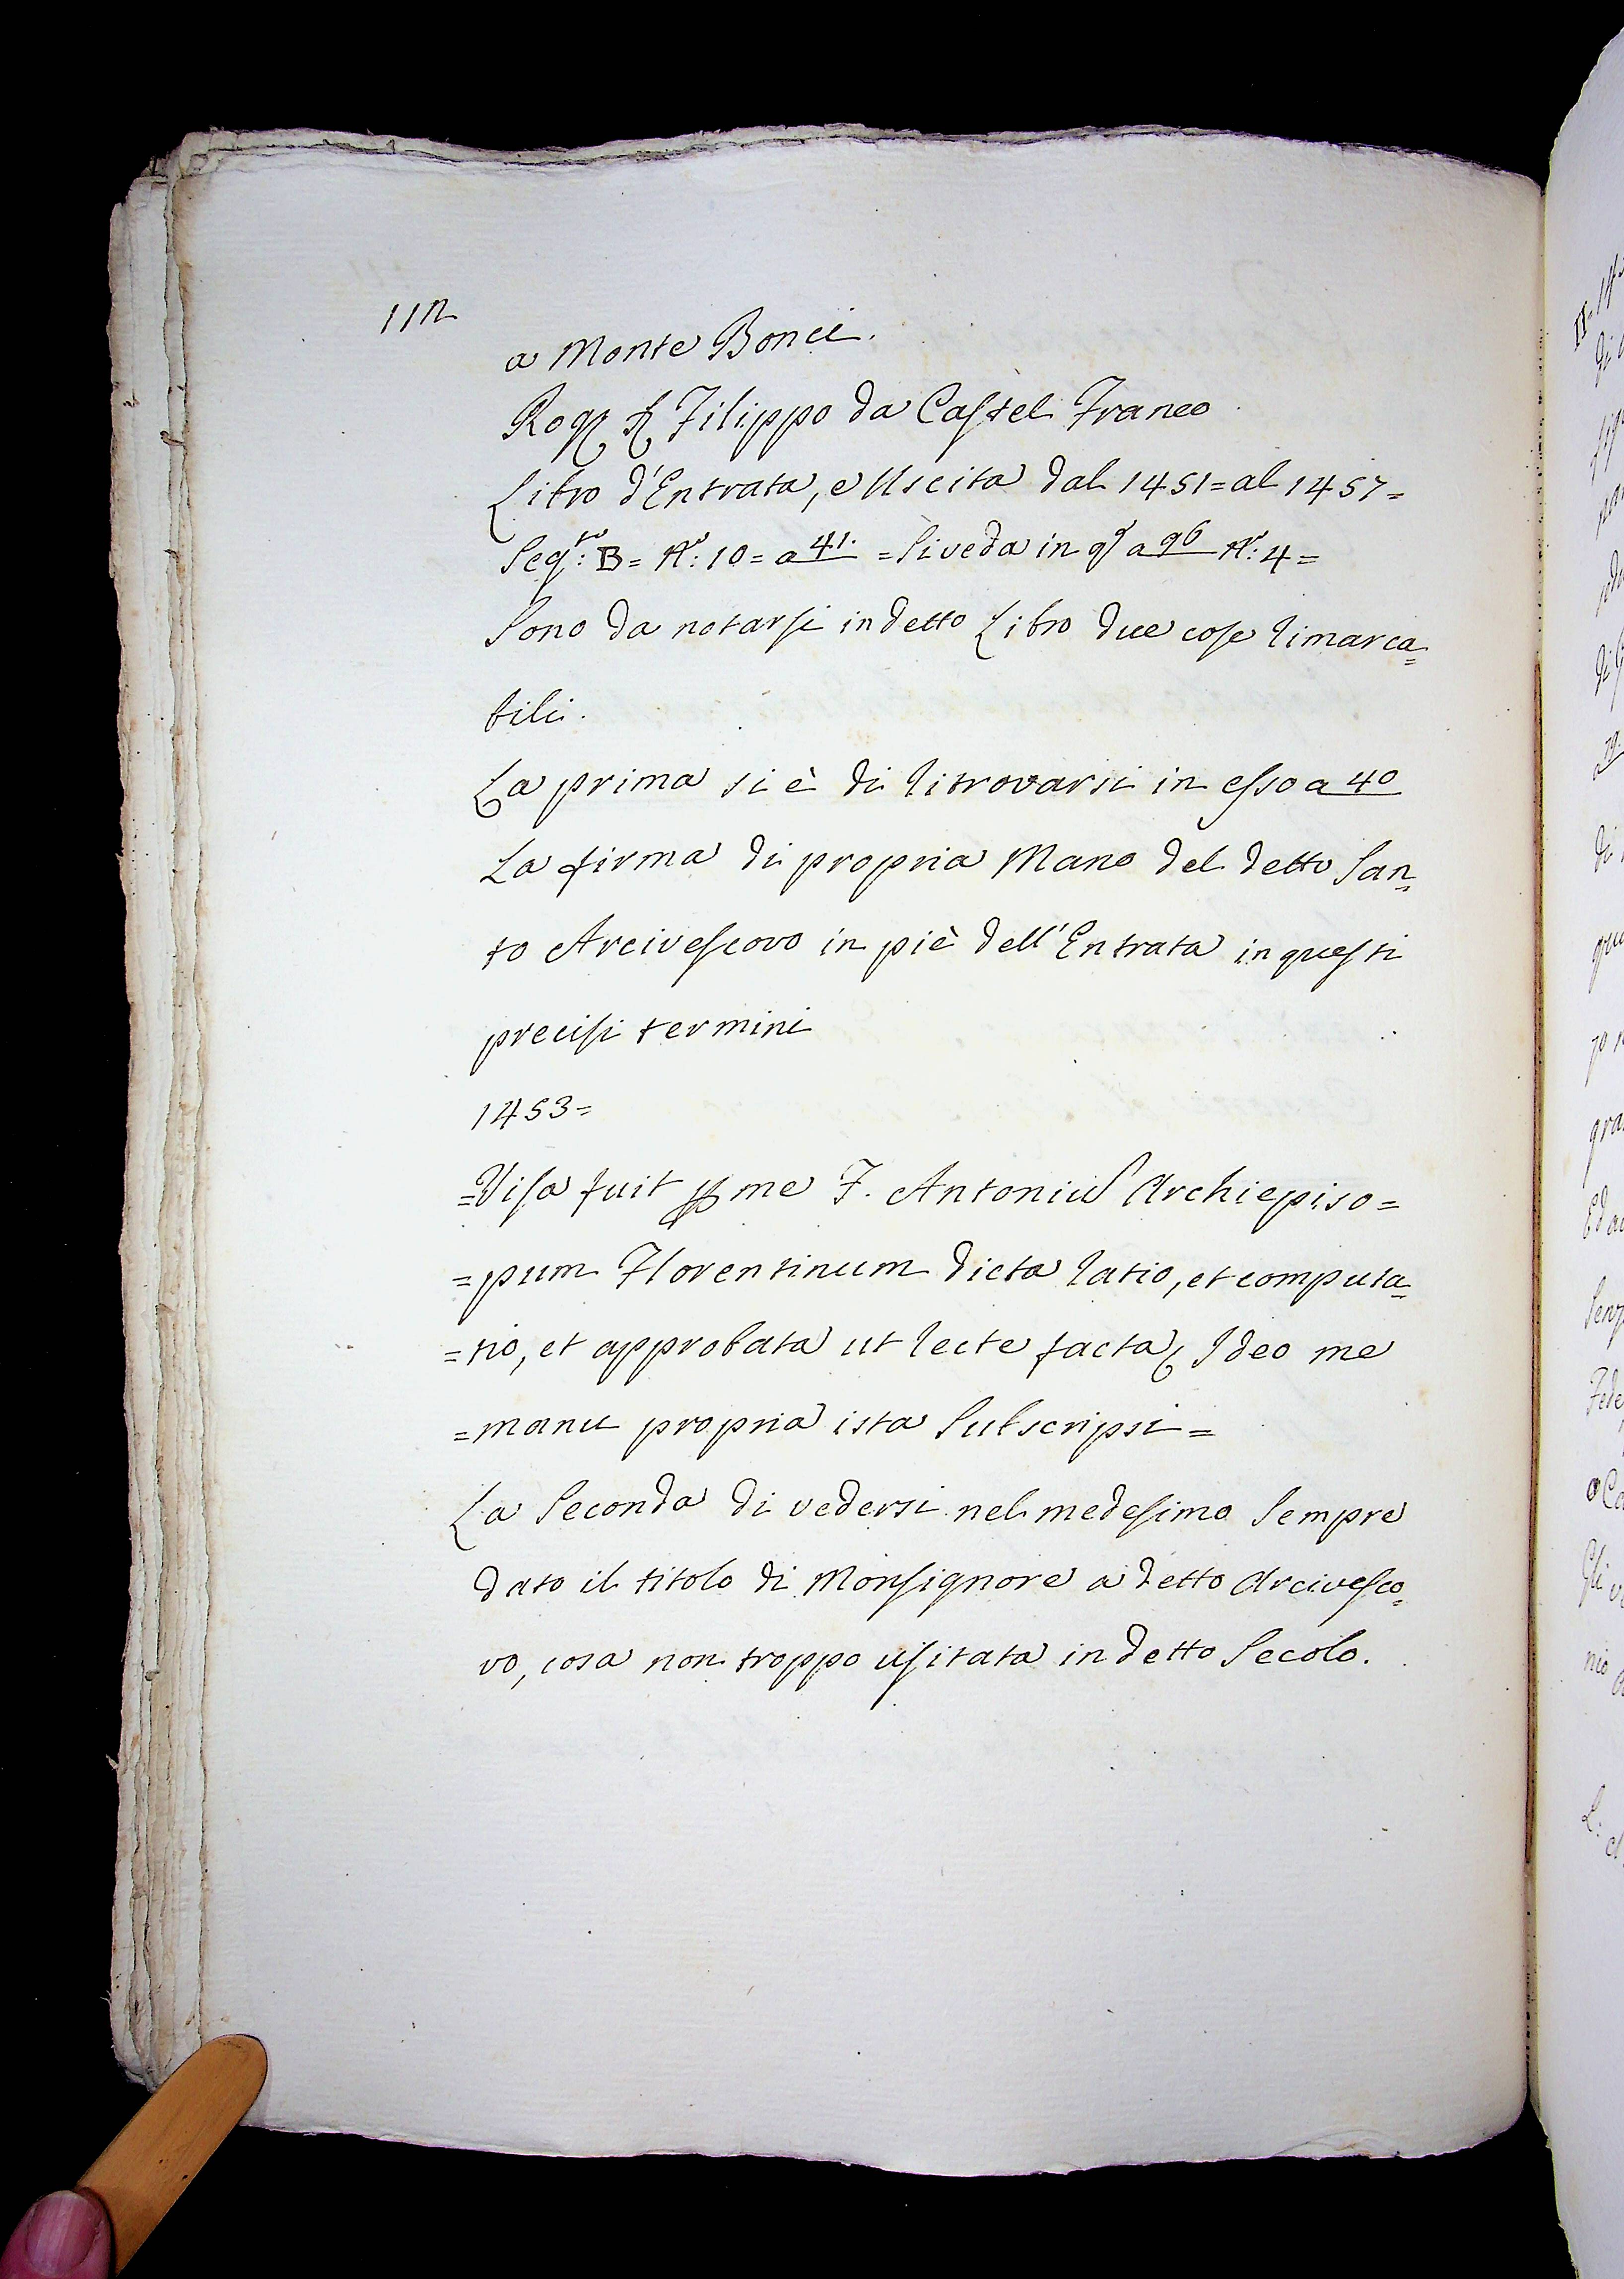 112
a Monte Bonci.
Rog Filippo da Castel Franco
Libro d'Entrata, e Uscita dal 1451= al 1457=
Segto: B= No: 10= a 41. = Si veda in qo a 96 No: 4=
Sono da notarsi in detto Libro due cose rimarca=
bili.
La prima si è di ritrovarsi in esso a 40
La firma di propria Mano del detto San=
to Arcivescovo in piè dell'Entrata in questi
precisi termini
1453=
=Visa fuit per me F. Antonius Archiepiso=
=pum Florentinum dicta ratio, et computa=
=tio, et approbata ut recte facta, Ideo me
=manu propria ista Subscripsi=
La Seconda di vedersi nel medesimo Sempre
dato il titolo di Monsignore a detto Arcivesco=
vo, cosa non troppo usitata in detto Secolo.